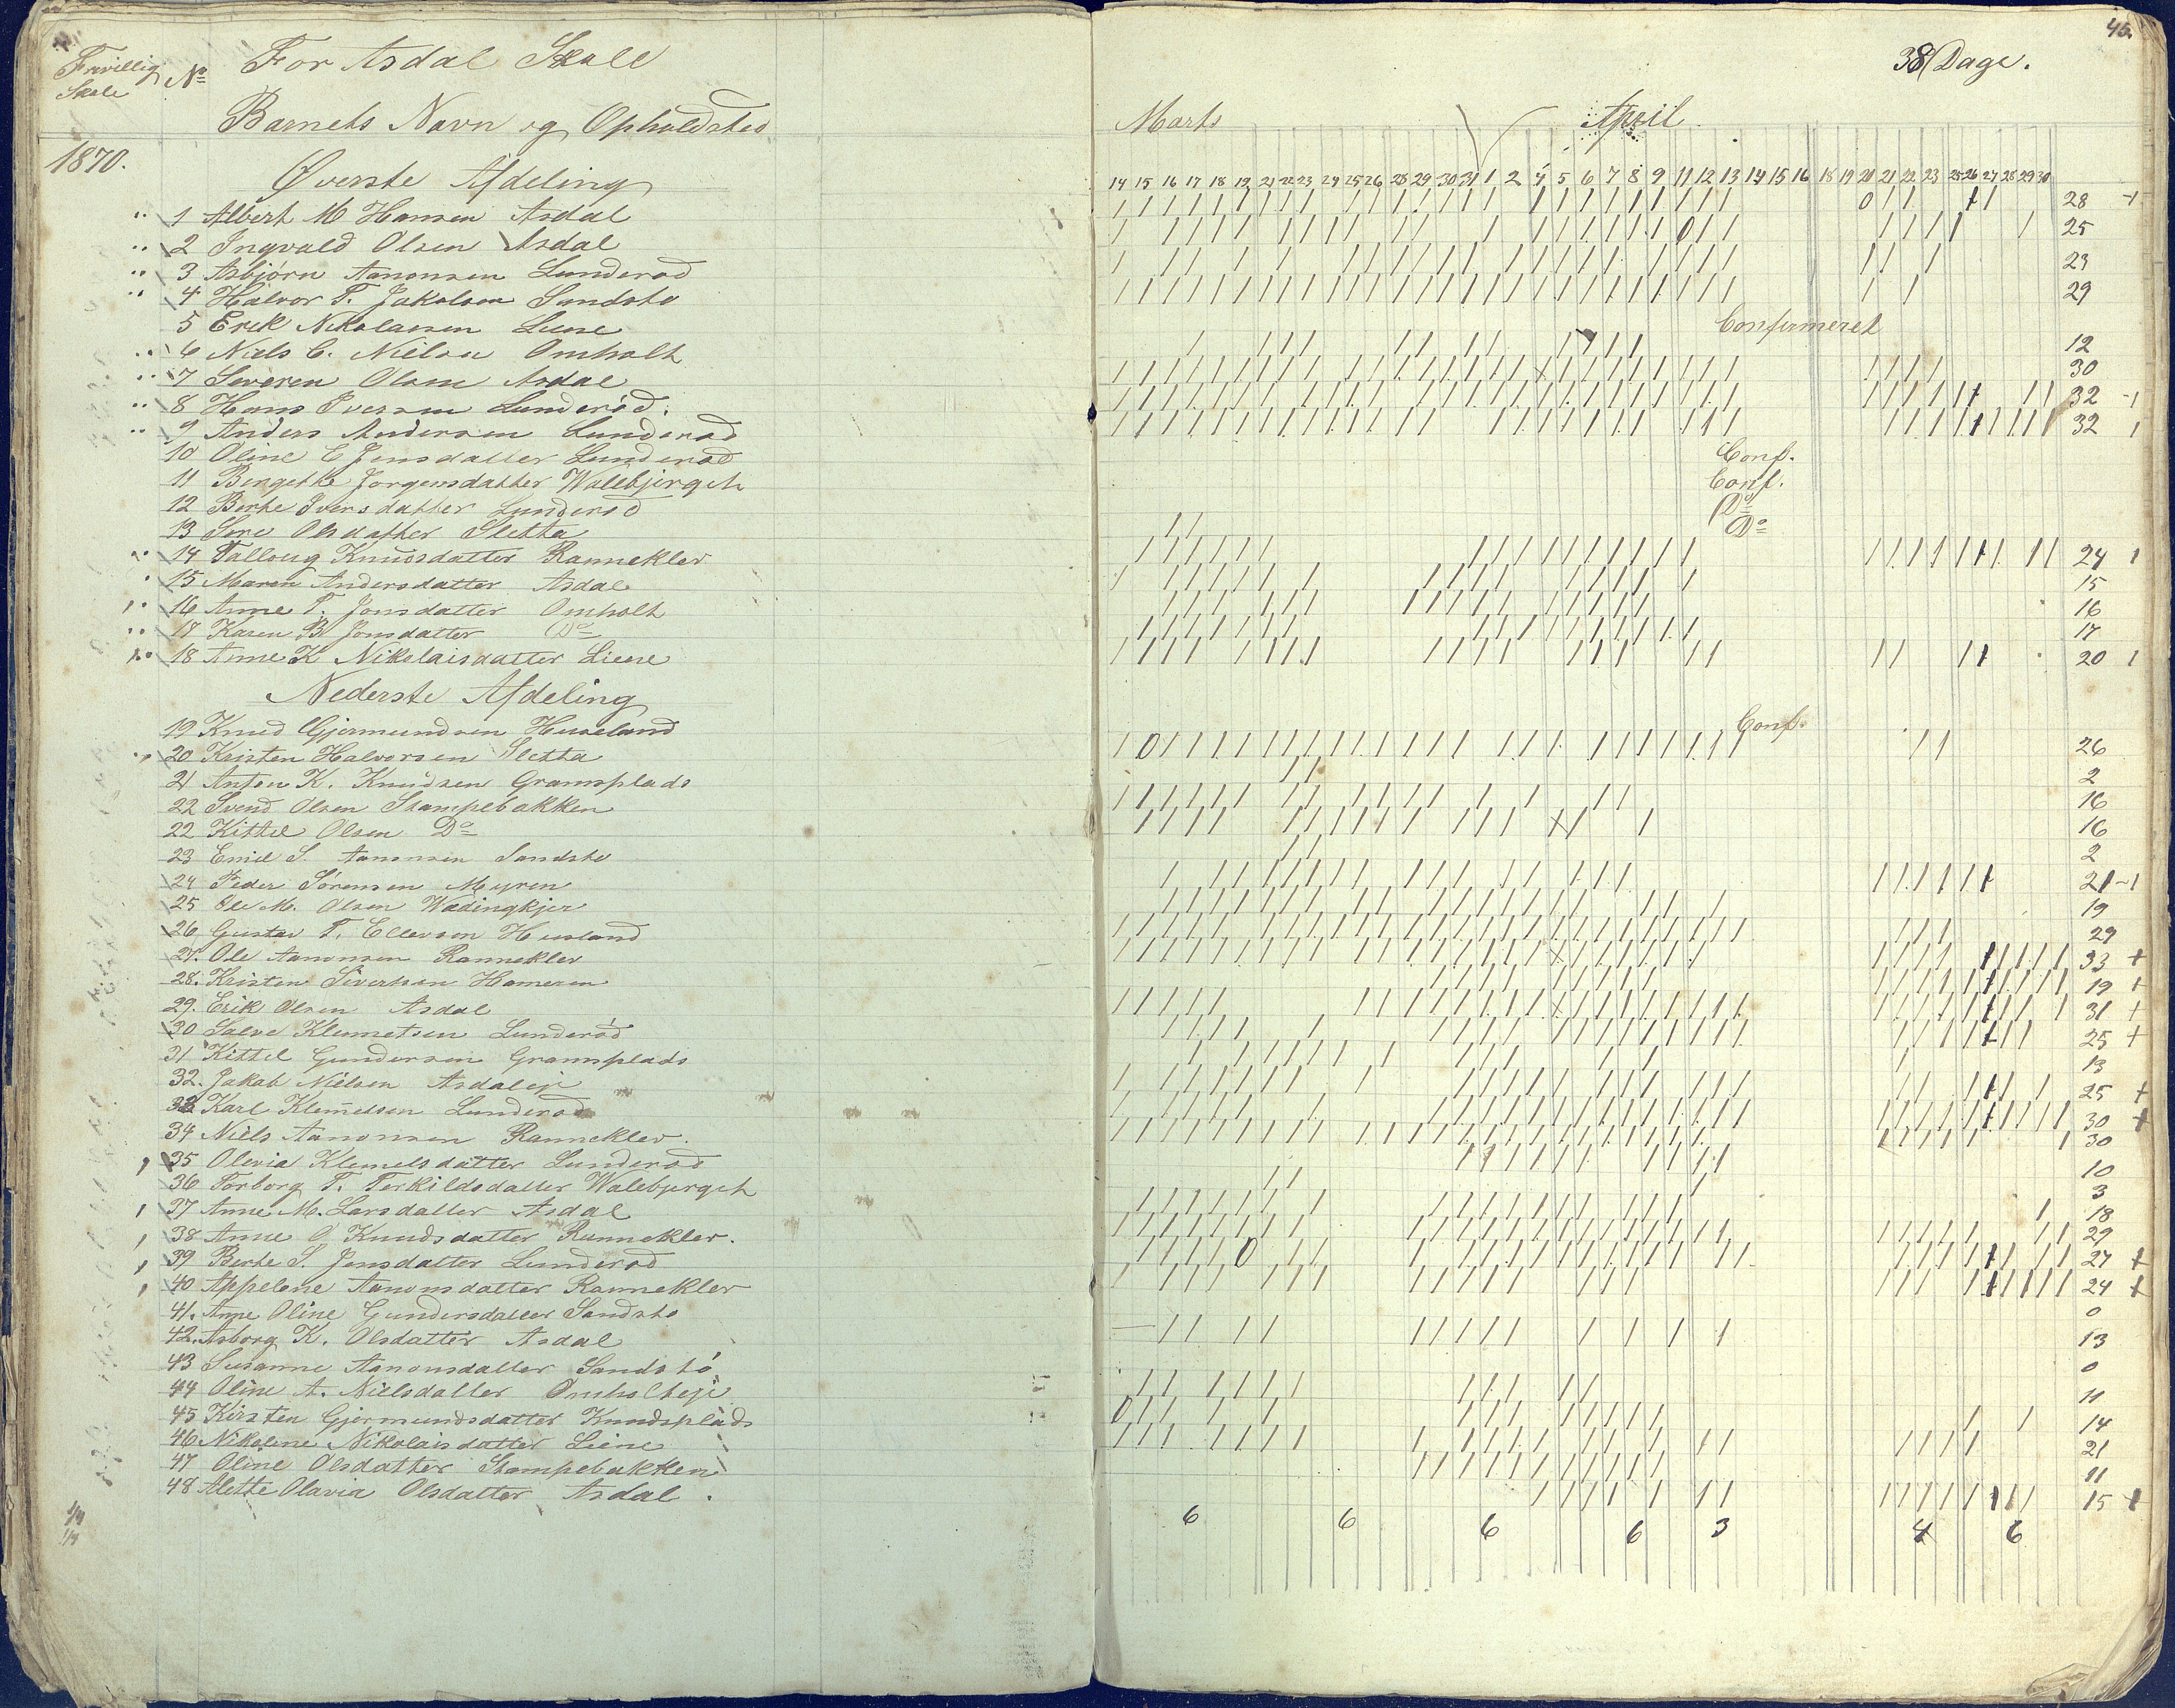 Frivillig Skole № For Asdal Skole
Barnets Navn og Opholdsted
1870.
Øverste Afdeling
1 Albert M Hansen Asdal
2 Ingvald Olsen Asdal
3 Asbjørn Aanonsen Lunderød
4 Halvor T. Jakobsen Sandstø
5 Erik Nikolaisen Liene
6 Niels C. Nielsen Omholt
7 Severen Olsen Asdal
8 Hans Iversen Lunderød.
9 Anders Andersen Lunderød
10 Oline E Jensdatter Lunderød
11 Bergethe Jørgensdatter Walebjerget
12 Berthe Iversdatter Lunderød
13 Sere Olsdatter Sletta
14 Talloug Knudsdatter Ranneklev
15 Maren Andersdatter Asdal
16 Anne T. Jonsdatter Omholt
17 Karen B Jonsdatter Do
18 Anne K Nikolaisdatter Liene
Nederste Afdeling
19 Knud Gjermundsen Huseland
20 Kristen Halvorsen Sletta
21 Anton K. Knudsen Gramsplads
22 Svend Olsen Stampebakken
22 Kittel Olsen Do
23 Emil S. Aanonsen Sandstø
24 Peder Sørensen Myren
25 Ole M. Olsen Wadingkjer
26 Gustav T. Ellevsen Husland
27. Ole Aanonsen Ranneklev
28. Kristen Sivertsen Hameren
29. Erik Olsen Asdal
30 Salve Klemetsen Lunderød
31 Kittel Gundersen Gramsplads
32. Jakob Nielsen Asdaleje
33 Karl Klemetsen Lunderød
34 Niels Aanonsen Ranneklev.
35 Olevia Klemetsdatter Lunderød
36 Torborg T. Terkildsdatter Walebjerget
37 Anne M. Larsdatter Asdal
38 Anne O Knudsdatter Ranneklev.
39 Berthe S. Jensdatter Lunderød
40 Appelone Aanonsdatter Ranneklev
41. Anne Oline Gundersdatter Sandstø
42. Asborg K. Olsdatter Asdal
43 Susanne Aanonsdatter Sandstø
44 Oline A. Nielsdatter Omholteje
45 Kirsten Gjermundsdatter Knudsplads
46 Nikoline Nikolaisdatter Liene
47 Oline Olsdatter Stampebakken
48 Alette Olavia Olsdatter Asdal.
46.
38 Dage.
Marts April
14 15 16 17 18 19 21 22 23 24 25 26 28 29 30 31 1 2 4 5 6 7 8 9 11 12 13 14 15 16 18 19 20 21 22 23 25 26 27 28 29 30
28
25
23
29
Confirmeret
12
30
32
32
Conf.
Conf.
Do
Do
24
15
16
17
20
Conf.
26
2
16
16
2
21
19
29
33 +
19 +
31 +
25 +
13
25 +
30 +
30
10
3
18
29
27 +
24 +
0
13
0
11
14
21
11
15 +
6 6 6 6 3 4 6